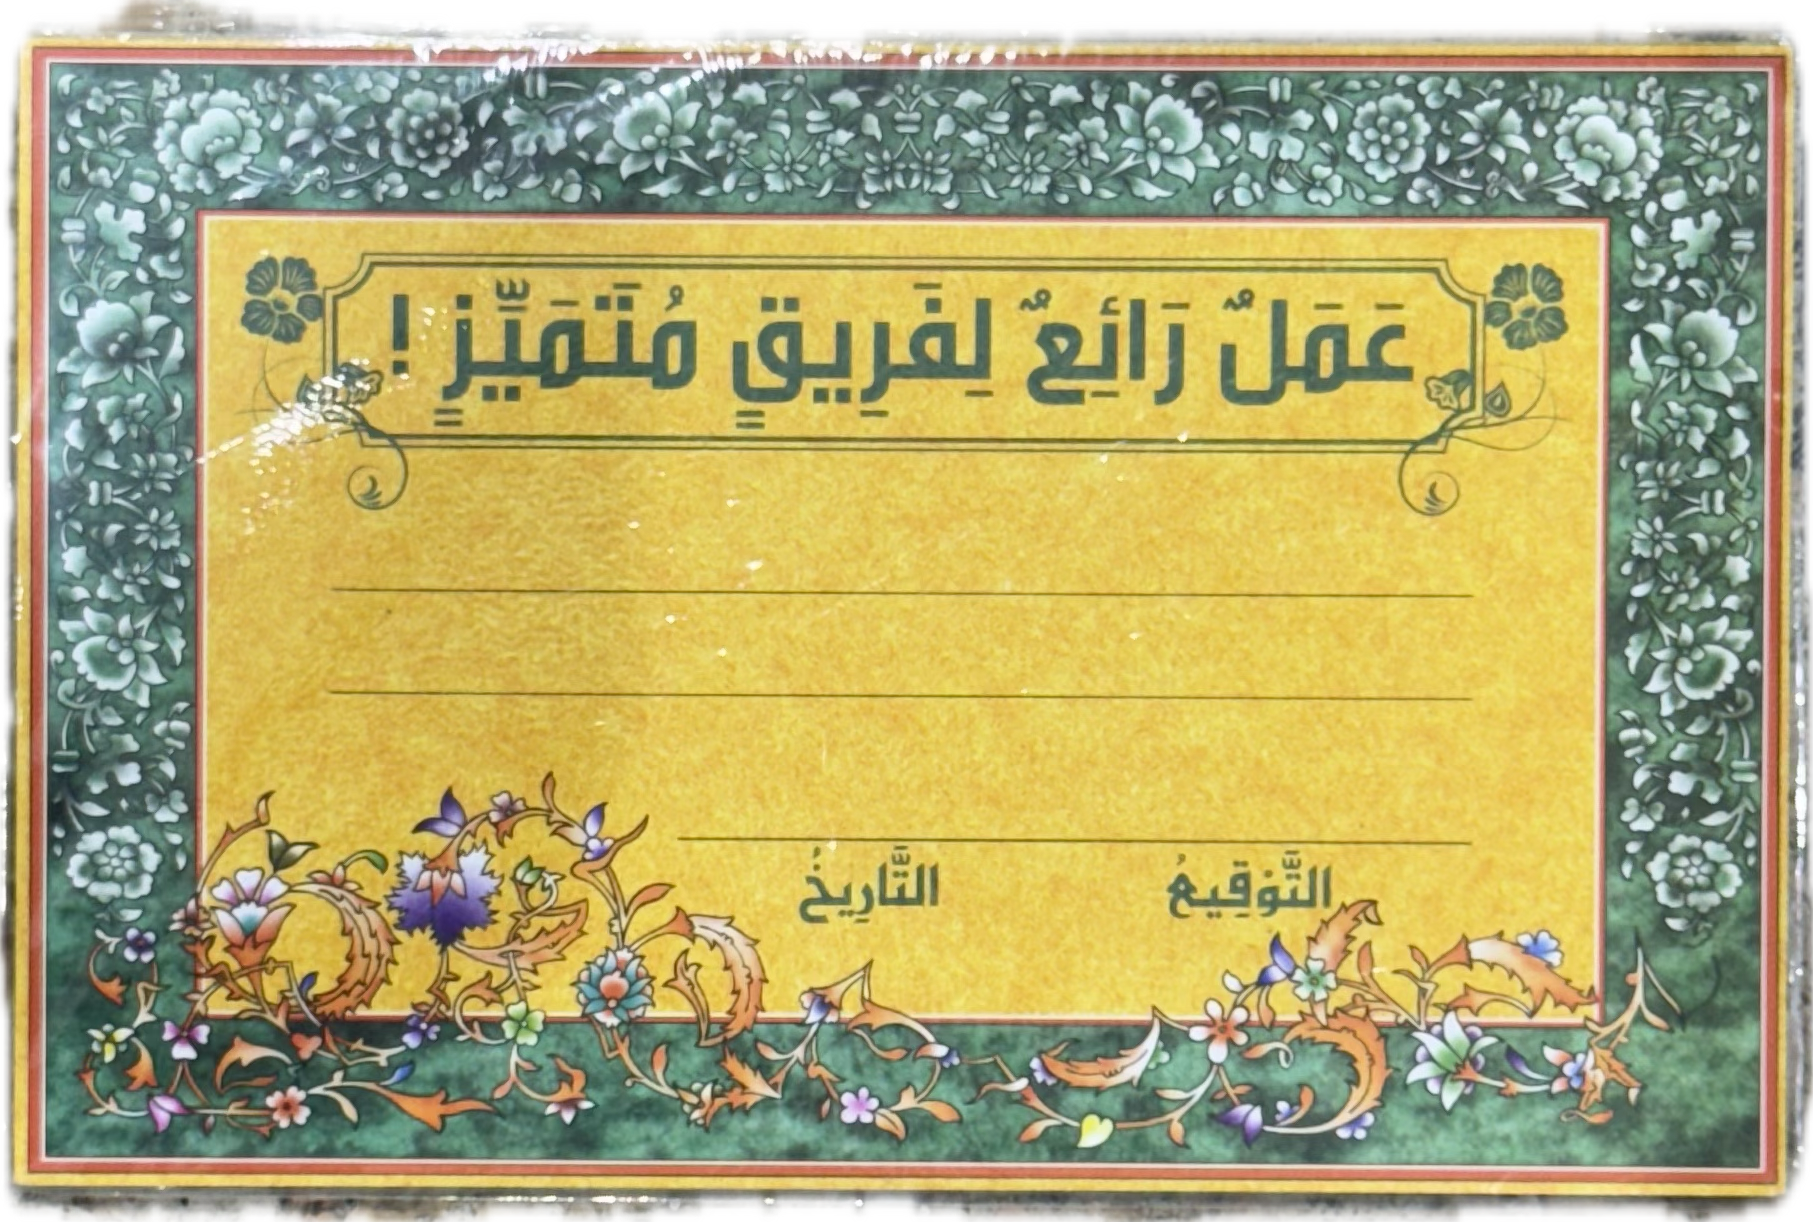 عَمَلٌ رَائِعٌ لِفَرِيقٍ مُتَمَيِّزٍ !
التَّوْقِيعُ التَّارِيخُ